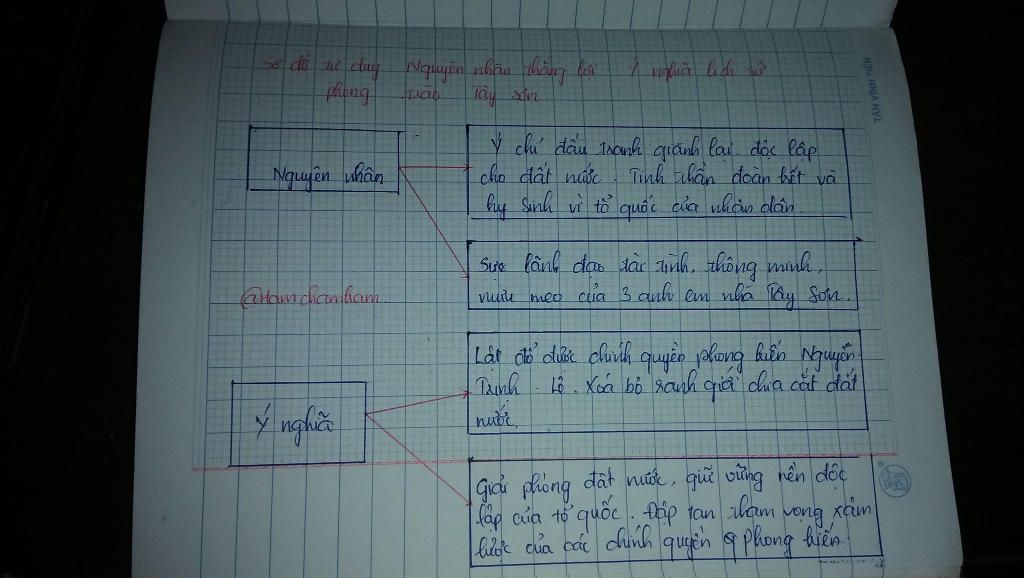 Sơ đồ tư duy Nguyên nhân thắng lợi Ý nghĩa lịch sử
phong trào Tây Sơn
Nguyên nhân
Ý chí đấu tranh giành lại độc lập
cho đất nước. Tinh thần đoàn kết và
hy sinh vì tổ quốc của nhân dân.
Sự lãnh đạo tài tình, thông minh,
mưu mẹo của 3 anh em nhà Tây Sơn.
@Hamchamham
Ý nghĩa
Lật đổ được chính quyền phong kiến Nguyễn-
Trịnh - Lê. Xoá bỏ ranh giới chia cắt đất
nước.
Giải phóng đất nước, giữ vững nền độc
lập của tổ quốc. Đập tan tham vọng xâm
lược của các chính quyền phong kiến
TÂN VĨNH TIẾN